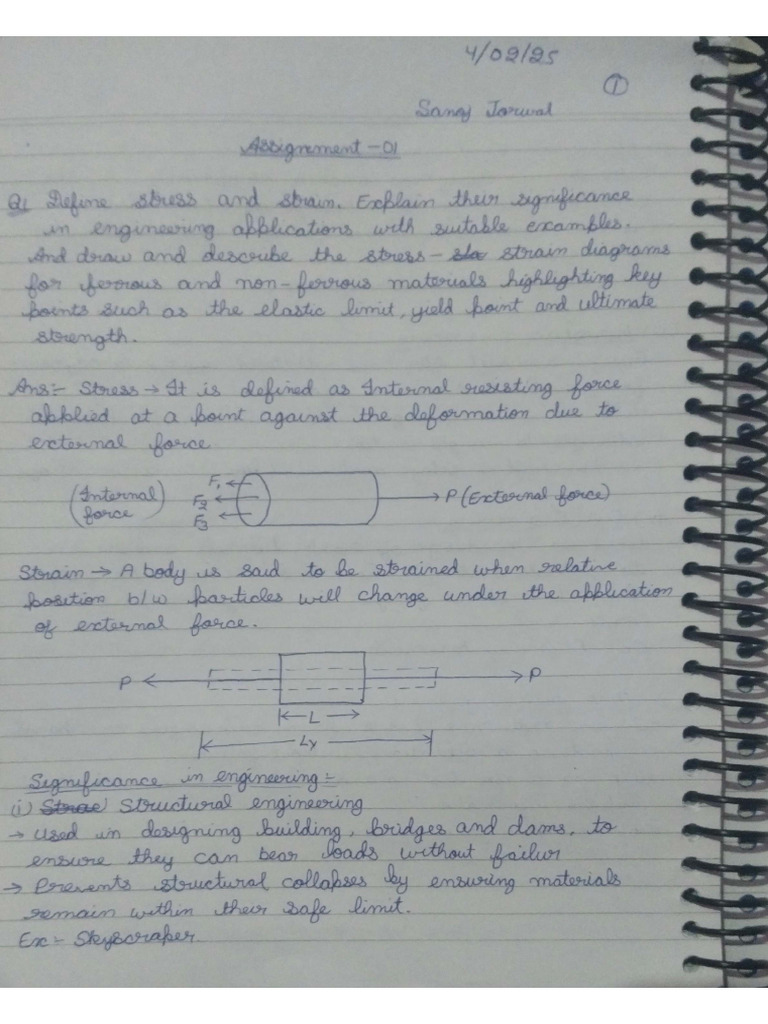 4/02/25
①
Sanoj Jorwal
Assignment - 01
Q1 Define stress and strain. Explain their significance
in engineering applications with suitable examples.
And draw and describe the stress - strain diagrams
for ferrous and non-ferrous materials highlighting key
points such as the elastic limit, yield point and ultimate
strength.
Ans:- Stress → It is defined as Internal resisting force
applied at a point against the deformation due to
external force
(Internal force) F1 F2 F3 P (External force)
Strain → A body is said to be strained when relative
position b/w particles will change under the application
of external force.
P P
L
Ly
Significance in engineering :-
(i) Structural engineering
→ Used in designing building, bridges and dams, to
ensure they can bear loads without failur
→ Prevents structural collapses by ensuring materials
remain within their safe limit.
Ex:- Skyscraper